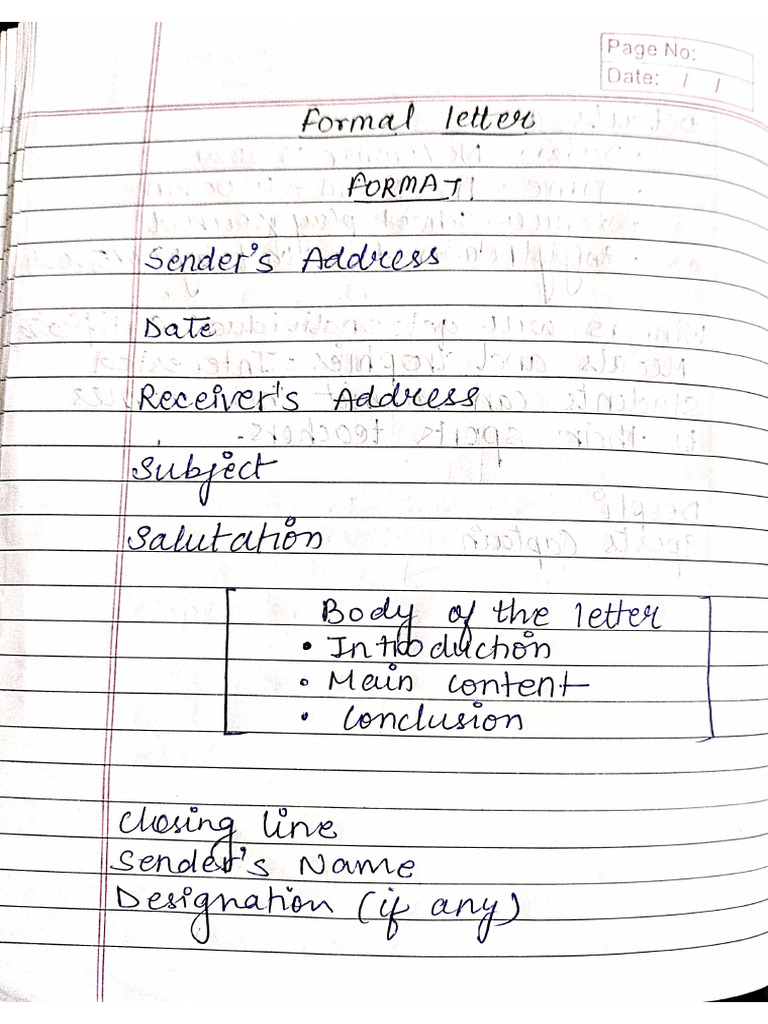 Page No:
Date: / /
Formal letter
FORMAT:
Sender's Address
Date
Receiver's Address
Subject
Salutation
Body of the letter
• Introduction
• Main content
• Conclusion
Closing line
Sender's Name
Designation (if any)